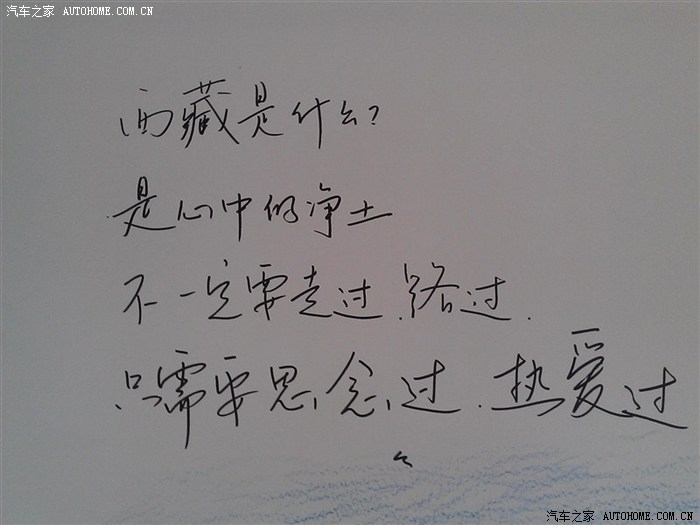 汽车之家 AUTOHOME.COM.CN
西藏是什么?
是心中的净土
不一定要走过.路过.
只需要思念过.热爱过
汽车之家 AUTOHOME.COM.CN